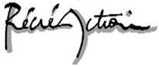 Récré Action